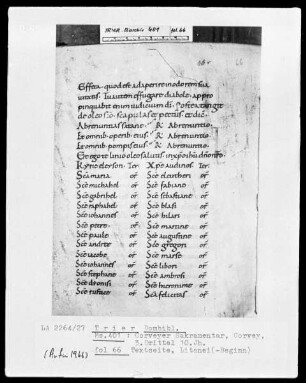 TRIER Dombibl. 401 fol 66
68r 66
Effeta quod est adaperire in odorem sua
uitatis. Tu autem effugare diabole. appro
pinquabit enim iudicium dī. Postea tangit
de oleo scō scapulas et pectus. et dic
Abrenuntias satane. R̃ Abrenuntio.
Et omnib. operib. eius. R̃ Abrenuntio.
Et omnib. pompis eius. R̃ Abrenuntio
Et ego te linio oleo salutis in xpō ihū dño nrō.
Kyrieleison Ter Xp̄e audi nos Ter
Scā maria or̄ Scē eleutheri or̄
Scē michahel or̄ Scē fabiane or̄
Scē gabrihel or̄ Scē sebastiane or̄
Scē raphahel or̄ Scē blasi or̄
Scē iohannes or̄ Scē hilari or̄
Scē petre or̄ Scē martine or̄
Scē paule or̄ Scē augustine or̄
Scē andree or̄ Scē gregori or̄
Scē iacobe or̄ Scē
Scē iohannes or̄ Scē libori or̄
Scē stephane or̄ Scē ambrosi or̄
Scē dionisi or̄ Scē hieronime or̄
Scē rustice or̄ Scā felicitas or̄
LA 2264/27 Trier Dombibl.
Ms. 401 : Corveyer Sakramentar, Corvey,
3. Drittel 10. Jh.
(Aufn. 1966) fol 66 Textseite, Litanei(-Beginn)